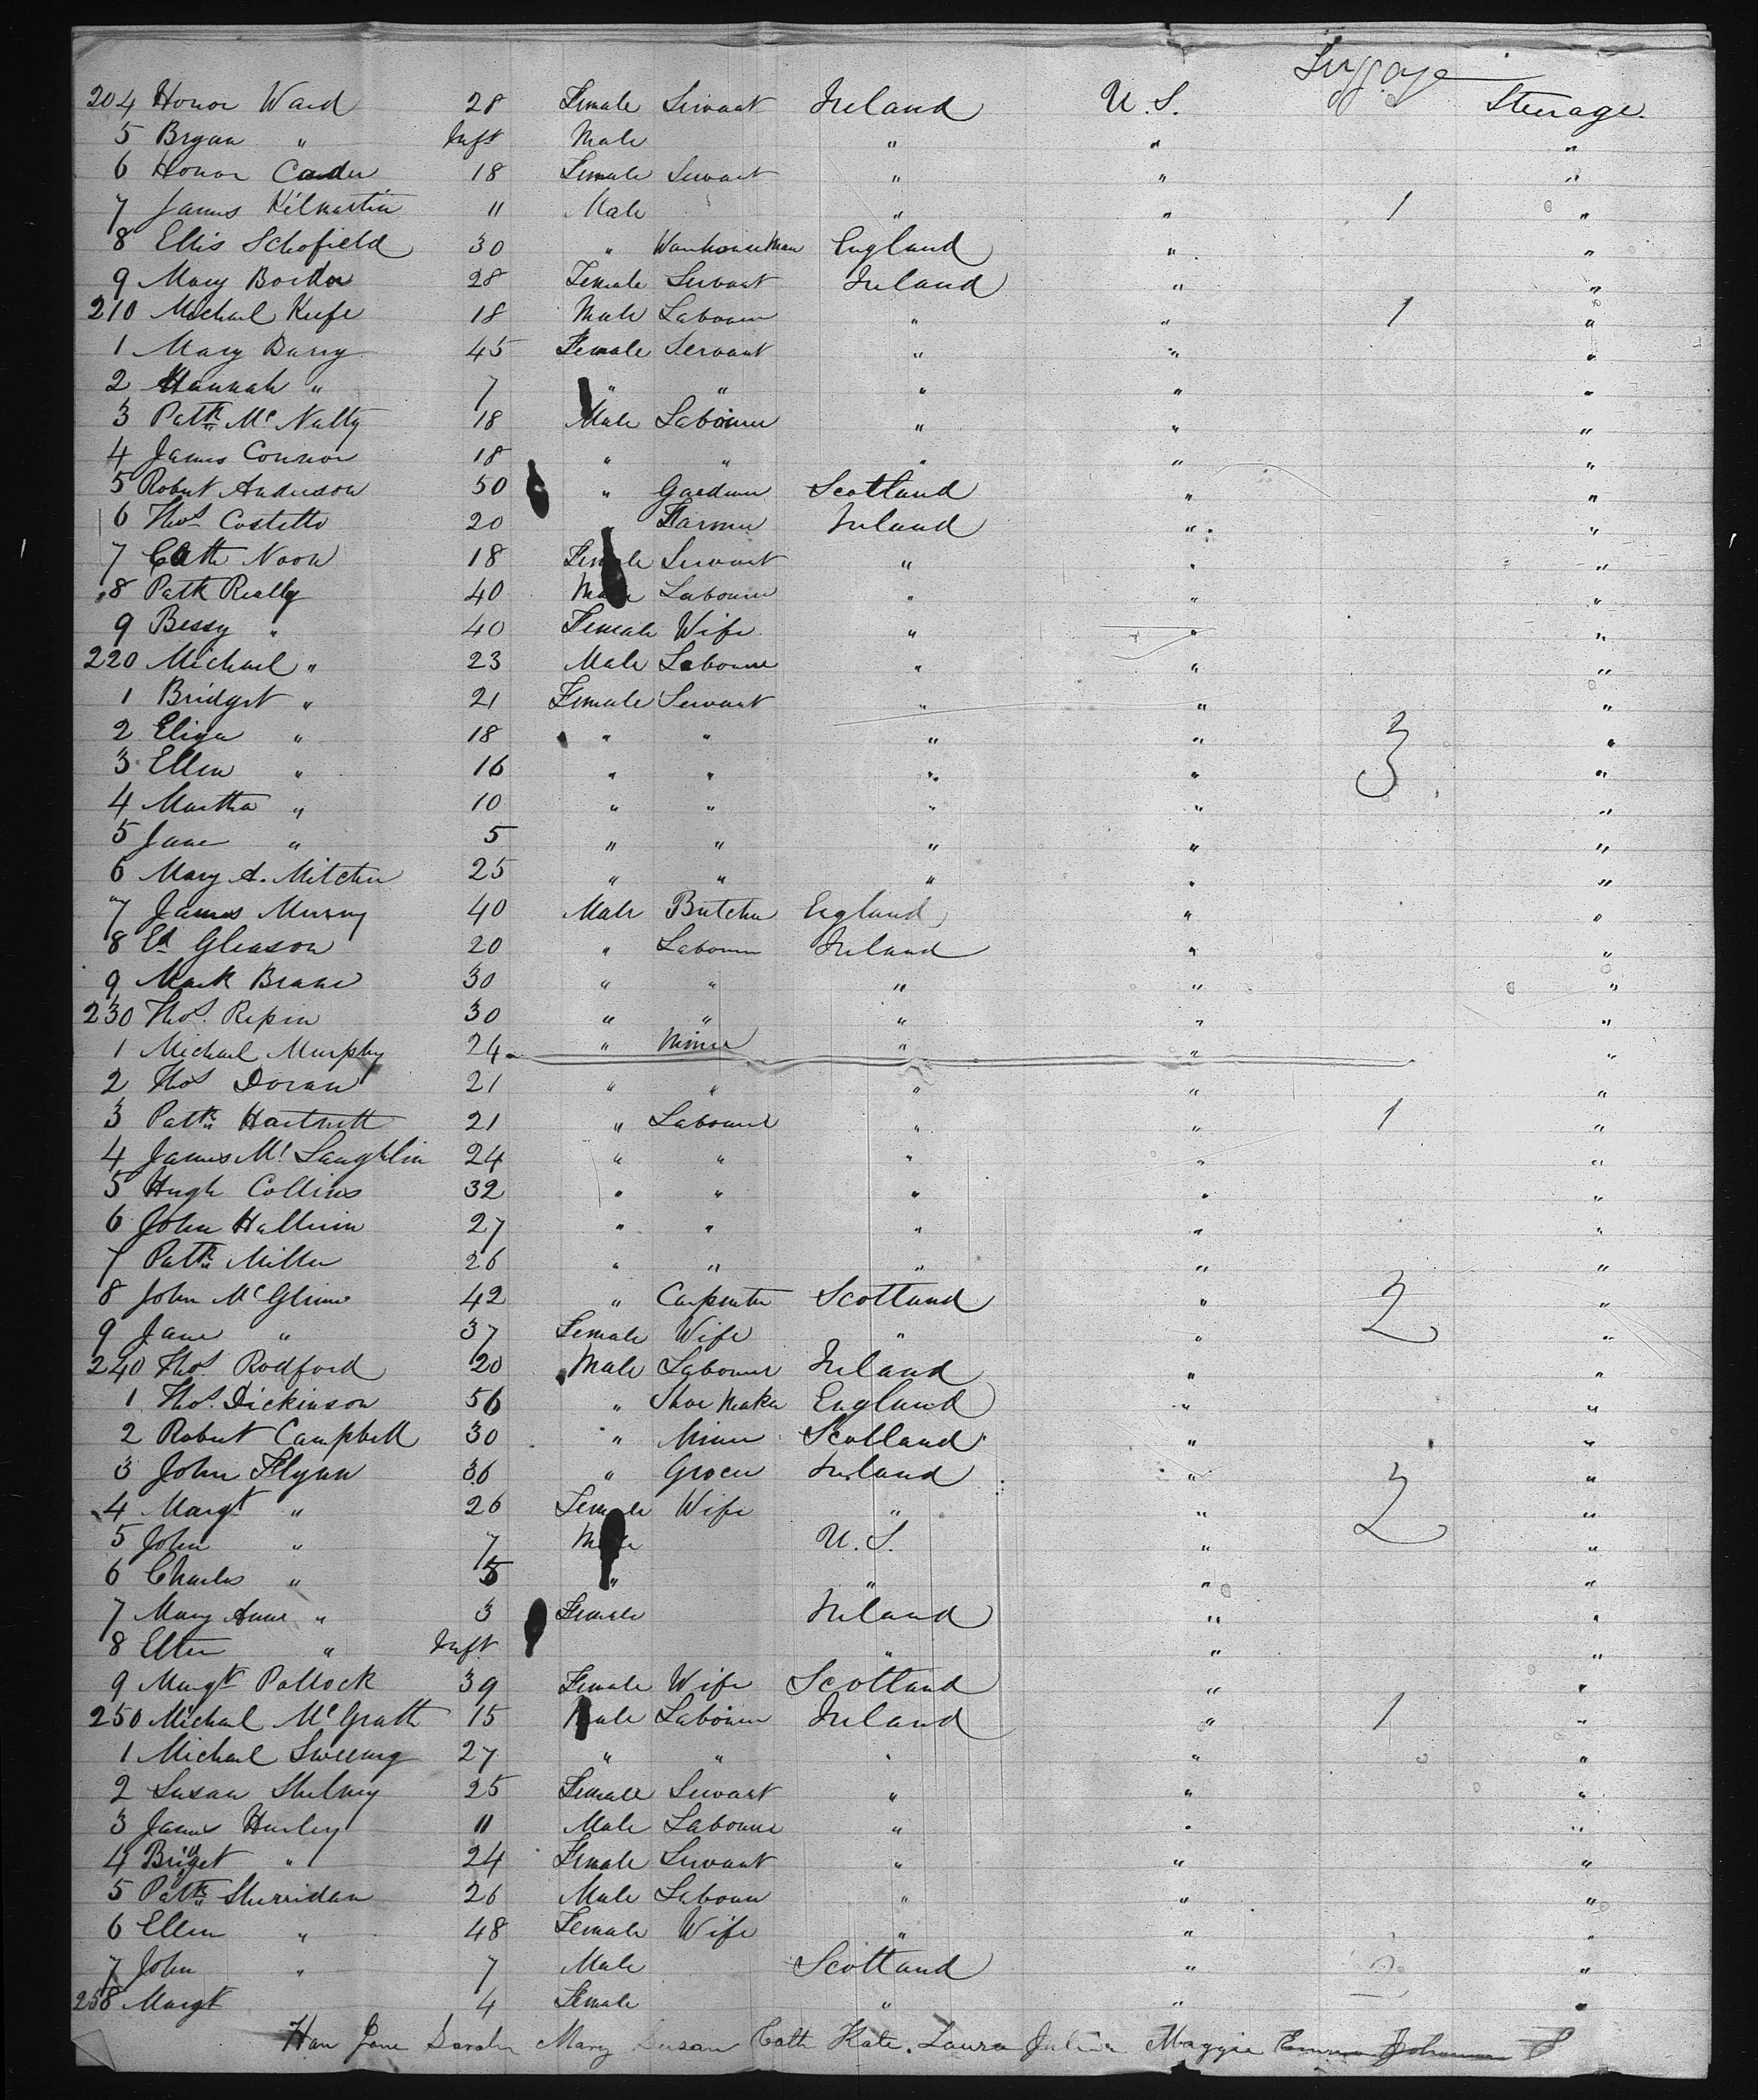 Luggage
204 Honor Ward 28 Female Servant Ireland U.S. Steerage.
5 Bryan " Inft Male " " "
6 Honor 18 Female Servant " " "
7 James Kilmartin 11 Male " " 1 "
8 Ellis Schofield 30 " Warehouse Man England " "
9 Mary 28 Female Servant Ireland " "
210 Michael Keefe 18 Male Labourer " " 1 "
1 Mary Barry 45 Female Servant " " "
2 Hannah " 7 " " " " "
3 Patk Mc Nalty 18 Male Labourer " " "
4 James Connor 18 " " " " "
5 Robert Anderson 50 " Gardner Scotland " "
6 Thos Costello 20 " Farmer Ireland " "
7 Cath Noon 18 Female Servant " " "
8 Patk Really 40 Male Labourer " " "
9 Bessy " 40 Female Wife " " "
220 Michael " 23 Male Labourer " " "
1 Bridget " 21 Female Servant " " "
2 Eliza " 18 " " " " 3 "
3 Ellen " 16 " " " " "
4 Martha " 10 " " " " "
5 Jane " 5 " " " " "
6 Mary A. 25 " " " " "
7 James Murray 40 Male Butcher England " "
8 Ed Gleason 20 " Labourer Ireland " "
9 Mark 30 " " " " "
230 Thos. Repin 30 " " " " "
1 Michael Murphy 24 " Miner " " "
2 Thos Doran 21 " " " " "
3 Patk Hartnett 21 " Labourer " " 1 "
4 James Mc Laughlin 24 " " " " "
5 Hugh Collins 32 " " " " "
6 John Hallinin 27 " " " " "
7 Patk Miller 26 " " " " "
8 John McGlinn 42 " Carpenter Scotland " 2 "
9 Jane " 37 Female Wife " " "
240 Thos. Rodford 20 Male Labourer Ireland " "
1 Thos. Dickinson 56 " Shoe Maker England " "
2 Robert Campbell 30 " Miner Scotland " "
3 John Flynn 36 " Grocer Ireland " 2 "
4 Margt " 26 Female Wife " " "
5 John " 7 Male U.S. " "
6 Charles " 5 " " " "
7 Mary Anne " 3 Female Ireland " "
8 Ellen " Inft " " "
9 Margt Pollock 39 Female Wife Scotland " "
250 Michael McGrath 15 Male Labourer Ireland " 1 "
1 Michael Sweeney 27 " " " " "
2 Susan 25 Female Servant " " "
3 James Hurley 11 Male Labourer " " "
4 Bridget " 24 Female Servant " " "
5 Patk Sherridan 26 Male Labourer " " "
6 Ellen " 48 Female Wife " " "
7 John " 7 Male Scotland " "
258 Margt 4 Female " " "
Han Jane Sarah Mary Susan Cath Kate. Laura Julia Maggie Emma Johanna